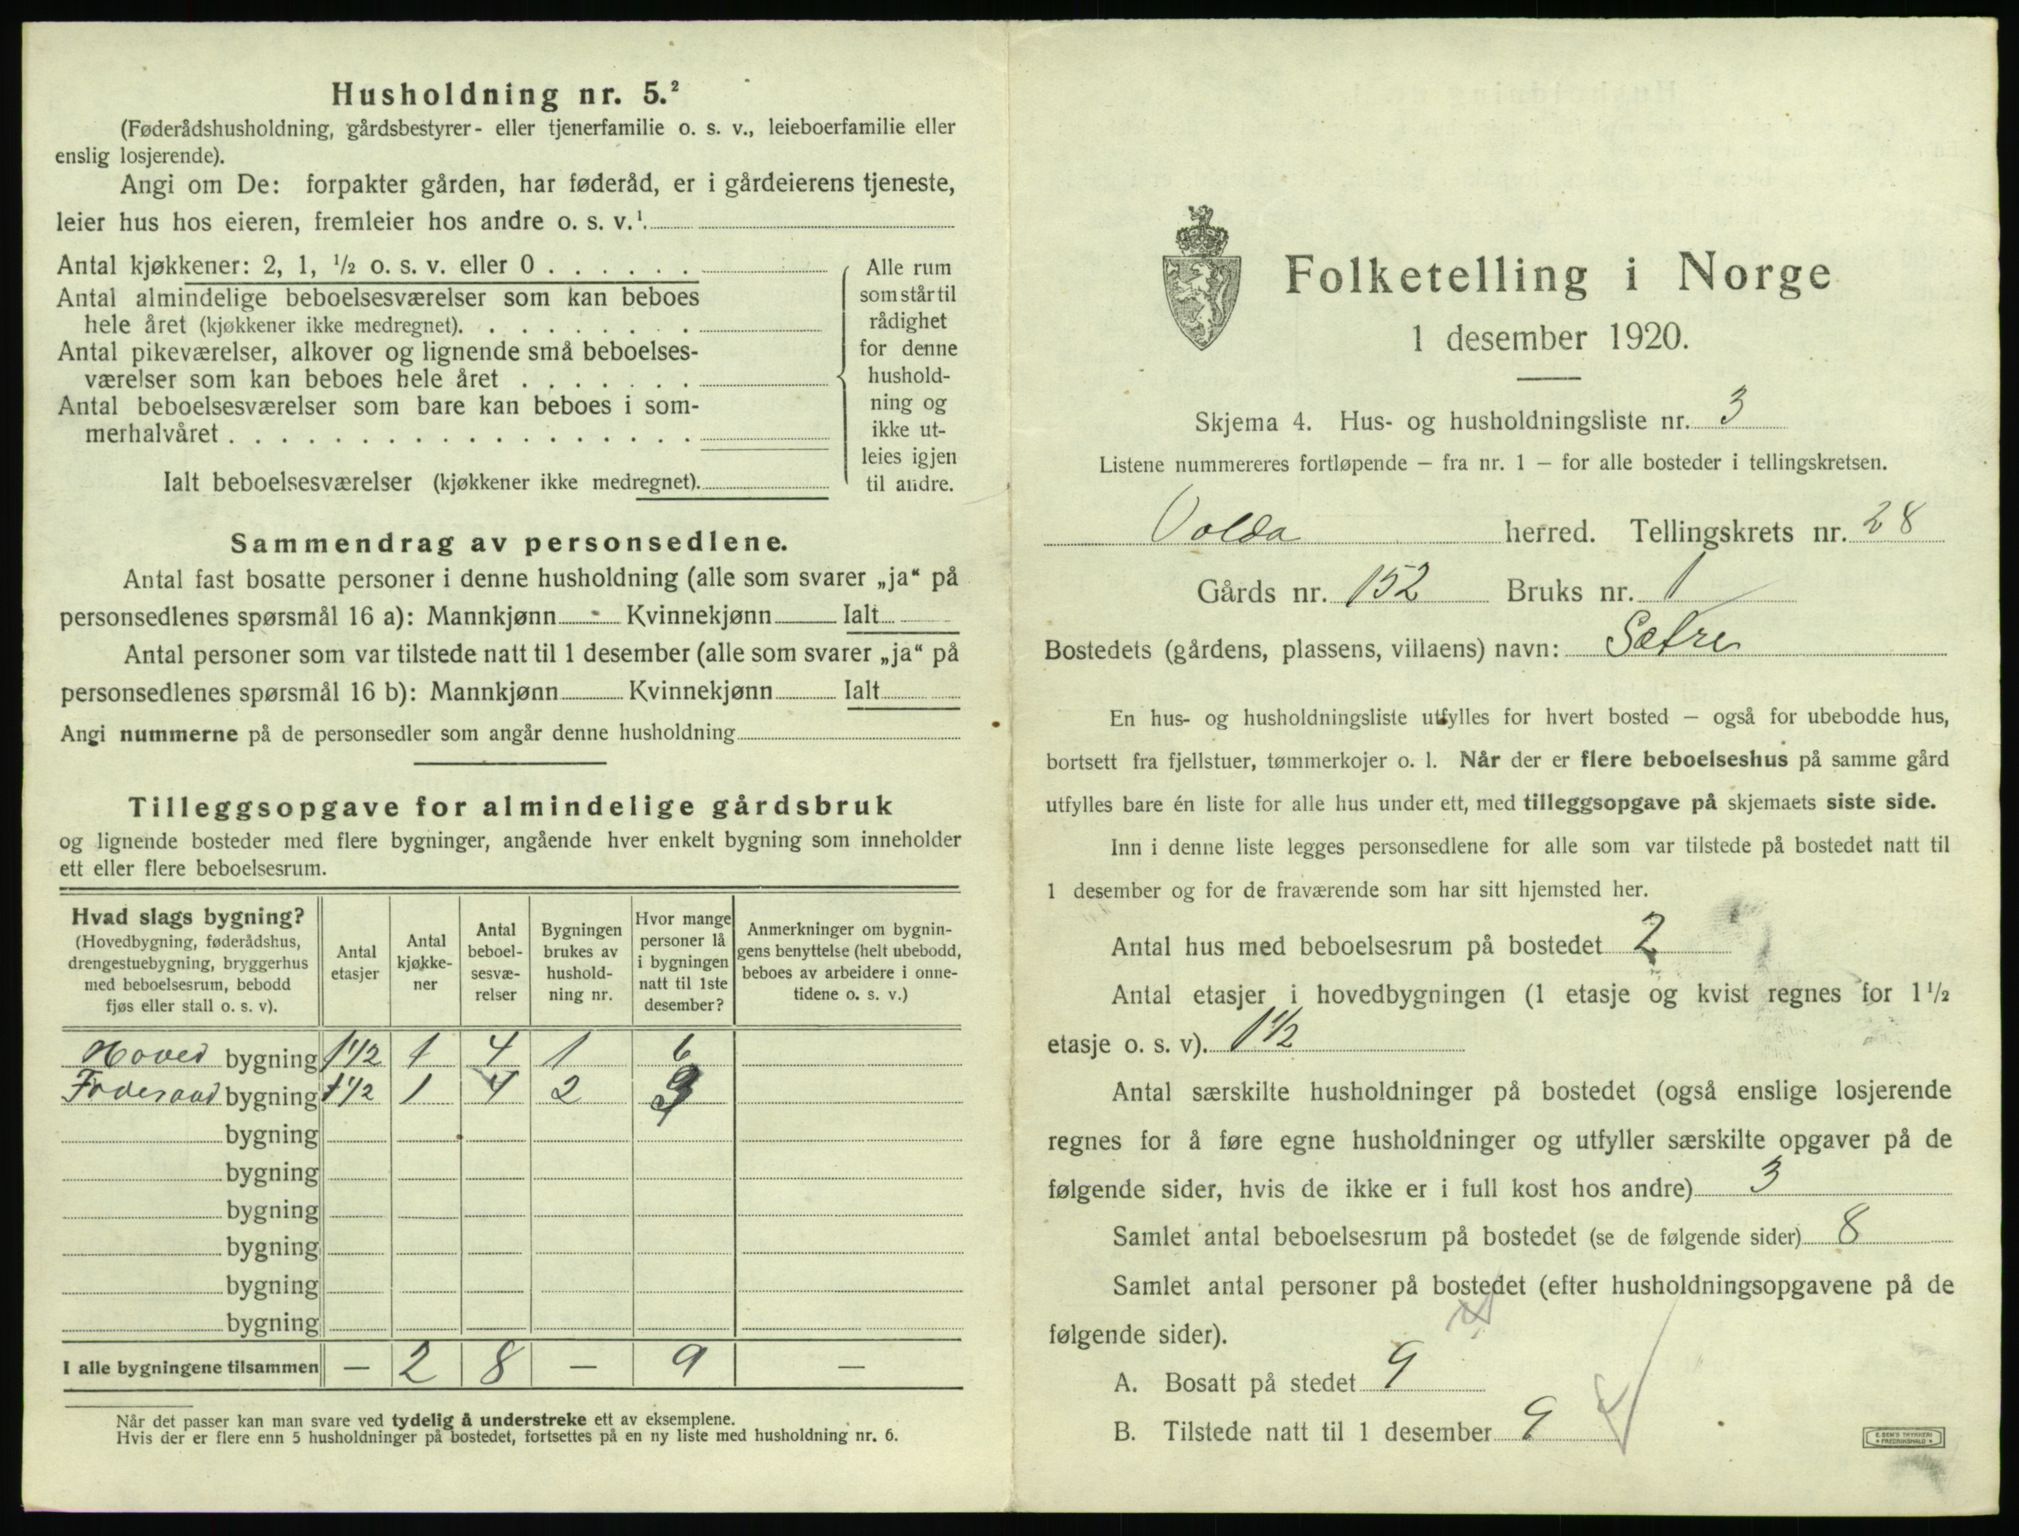 Husholdning nr. 5.²
(Føderådshusholdning, gårdsbestyrer- eller tjenerfamilie o. s. v., leieboerfamilie eller
enslig losjerende).
Angi om De: forpakter gården, har føderåd, er i gårdeierens tjeneste,
leier hus hos eieren, fremleier hos andre o. s. v.¹
Antal kjøkkener: 2, 1, ½ o. s. v. eller 0 . . . . . .
Antal almindelige beboelsesværelser som kan beboes
hele året (kjøkkener ikke medregnet). . . . . . . . .
Antal pikeværelser, alkover og lignende små beboelses-
værelser som kan beboes hele året . . . . . . .
Antal beboelsesværelser som bare kan beboes i som-
merhalvåret . . . . . . . . . . . . . . . . . .
Ialt beboelsesværelser (kjøkkener ikke medregnet).
Alle rum
som står til
rådighet
for denne
hushold-
ning og
ikke ut-
leies igjen
til andre.
Sammendrag av personsedlene.
Antal fast bosatte personer i denne husholdning (alle som svarer „ja“ på
personsedlenes spørsmål 16 a): Mannkjønn Kvinnekjønn Ialt
Antal personer som var tilstede natt til 1 desember (alle som svarer „ja“ på
personsedlenes spørsmål 16 b): Mannkjønn Kvinnekjønn Ialt
Angi nummerne på de personsedler som angår denne husholdning
Tilleggsopgave for almindelige gårdsbruk
og lignende bosteder med flere bygninger, angående hver enkelt bygning som inneholder
ett eller flere beboelsesrum.
Hvad slags bygning?
(Hovedbygning, føderådshus,
drengestuebygning, bryggerhus
med beboelsesrum, bebodd
fjøs eller stall o. s. v).
Antal
etasjer
Antal
kjøkke-
ner
Antal
beboel-
sesvæ-
relser
Bygningen
brukes av
hushold-
ning nr.
Hvor mange
personer lå
i bygningen
natt til 1ste
desember?
Anmerkninger om bygnin-
gens benyttelse (helt ubebodd,
beboes av arbeidere i onne-
tidene o. s. v.)
Hoved bygning 1½ 1 4 1 6
Foderaad bygning 1½ 1 4 2 3
bygning
bygning
bygning
bygning
bygning
bygning
I alle bygningene tilsammen — 2 8 — 9 —
Når det passer kan man svare ved tydelig å understreke ett av eksemplene.
Hvis der er flere enn 5 husholdninger på bostedet, fortsettes på en ny liste med husholdning nr. 6.
Folketelling i Norge
1 desember 1920.
Skjema 4. Hus- og husholdningsliste nr. 3
Listene nummereres fortløpende – fra nr. 1 – for alle bosteder i tellingskretsen.
Volda herred. Tellingskrets nr. 28
Gårds nr. 152 Bruks nr. 1
Bostedets (gårdens, plassens, villaens) navn: Sætre
En hus- og husholdningsliste utfylles for hvert bosted – også for ubebodde hus,
bortsett fra fjellstuer, tømmerkojer o. l. Når der er flere beboelseshus på samme gård
utfylles bare én liste for alle hus under ett, med tilleggsopgave på skjemaets siste side.
Inn i denne liste legges personsedlene for alle som var tilstede på bostedet natt til
1 desember og for de fraværende som har sitt hjemsted her.
Antal hus med beboelsesrum på bostedet 2
Antal etasjer i hovedbygningen (1 etasje og kvist regnes for 1½
etasje o. s. v). 1½
Antal særskilte husholdninger på bostedet (også enslige losjerende
regnes for å føre egne husholdninger og utfyller særskilte opgaver på de
følgende sider, hvis de ikke er i full kost hos andre) 3
Samlet antal beboelsesrum på bostedet (se de følgende sider) 8
Samlet antal personer på bostedet (efter husholdningsopgavene på de
følgende sider).
A. Bosatt på stedet 9
B. Tilstede natt til 1 desember 9
E. SEM'S TRYKKERI
FREDRIKSHALD